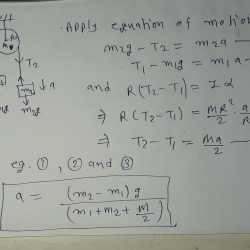 Apply equation of motion
m₂g - T₂ = m₂a
T₁ - m₁g = m₁a
and R(T₂ - T₁) = Iα
⇒ R(T₂ - T₁) = MR²/2 · a/R
⇒ T₂ - T₁ = Ma/2
eg. ①, ② and ③
a = (m₂ - m₁)g / (m₁ + m₂ + M/2)
R
T₂
↓a
m₂
m₂g